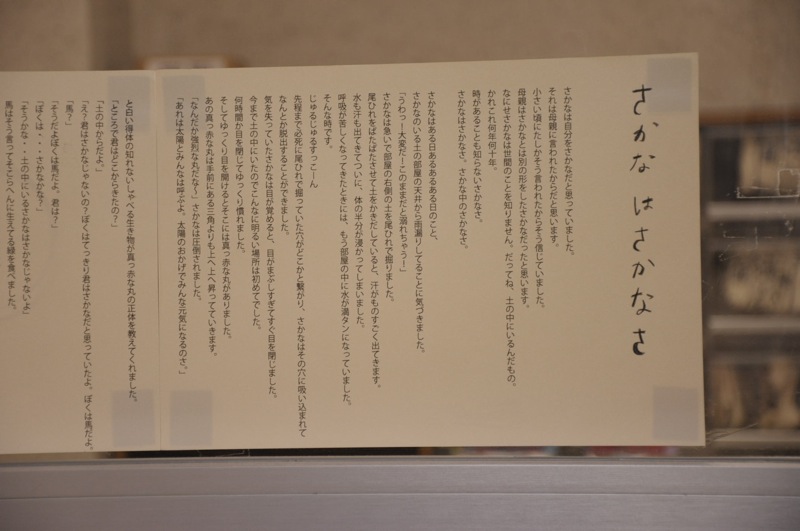 さかなはさかなさ
さかなは自分をさかなだと思っていました。
それは母親に言われたからだと思います。
小さい頃にたしかそう言われたからそう信じていました。
母親はさかなとは別の形をしたさかなだったと思います。
なにせさかなは世間のことを知りません。だってね、土の中にいるんだもの。
かれこれ何年何十年。
時があることも知らないさかなさ。
さかなはさかなさ。さかな中のさかなさ。
さかなはある日あるあるある日のこと、
さかなのいる土の部屋の天井から雨漏りしてることに気づきました。
「うわっー大変だーこのままだと溺れちゃうー」
さかなは急いで部屋の右側の土を尾ひれで掘りました。
尾ひれをばたばたさせて土をかきだしていると、汗がものすごく出てきます。
水も汗も出てきてついに、体の半分が浸かってしまいました。
呼吸が苦しくなってきたときには、もう部屋の中に水が満タンになっていました。
そんな時です。
じゅるじゅるすっこーん
先程まで必死に尾ひれで掘っていた穴がどこかと繋がり、さかなはその穴に吸い込まれて
なんとか脱出することができました。
気を失っていたさかなは目が覚めると、目がまぶしすぎてすぐ目を閉じました。
今まで土の中にいたのでこんなに明るい場所は初めてでした。
何時間か目を閉じてゆっくり慣れました。
そしてゆっくり目を開けるとそこには真っ赤な丸がありました。
あの真っ赤な丸は手前にある三角よりも上へ上へ昇ってていきます。
「なんだか強烈な丸だな〜」さかなは圧倒されました。
「あれは太陽とみんなは呼ぶよ。太陽のおかげでみんな元気になるのさ。」
と白い得体の知れないしゃべる生き物が真っ赤な丸の正体を教えてくれました。
「ところで君はどこからきたの？」
「土の中からだよ。」
「え？君はさかなじゃないの？ぼくはてっきり君はさかなだと思っていたよ。ぼくは馬だよ。」
「馬？」
「そうだよぼくは馬だよ。君は？」
「ぼくは・・・さかなかな？」
「そうかな・・土の中にいるさかなはさかなじゃないよ」
馬はそう言ってそこらへんに生えてる緑を食べました。